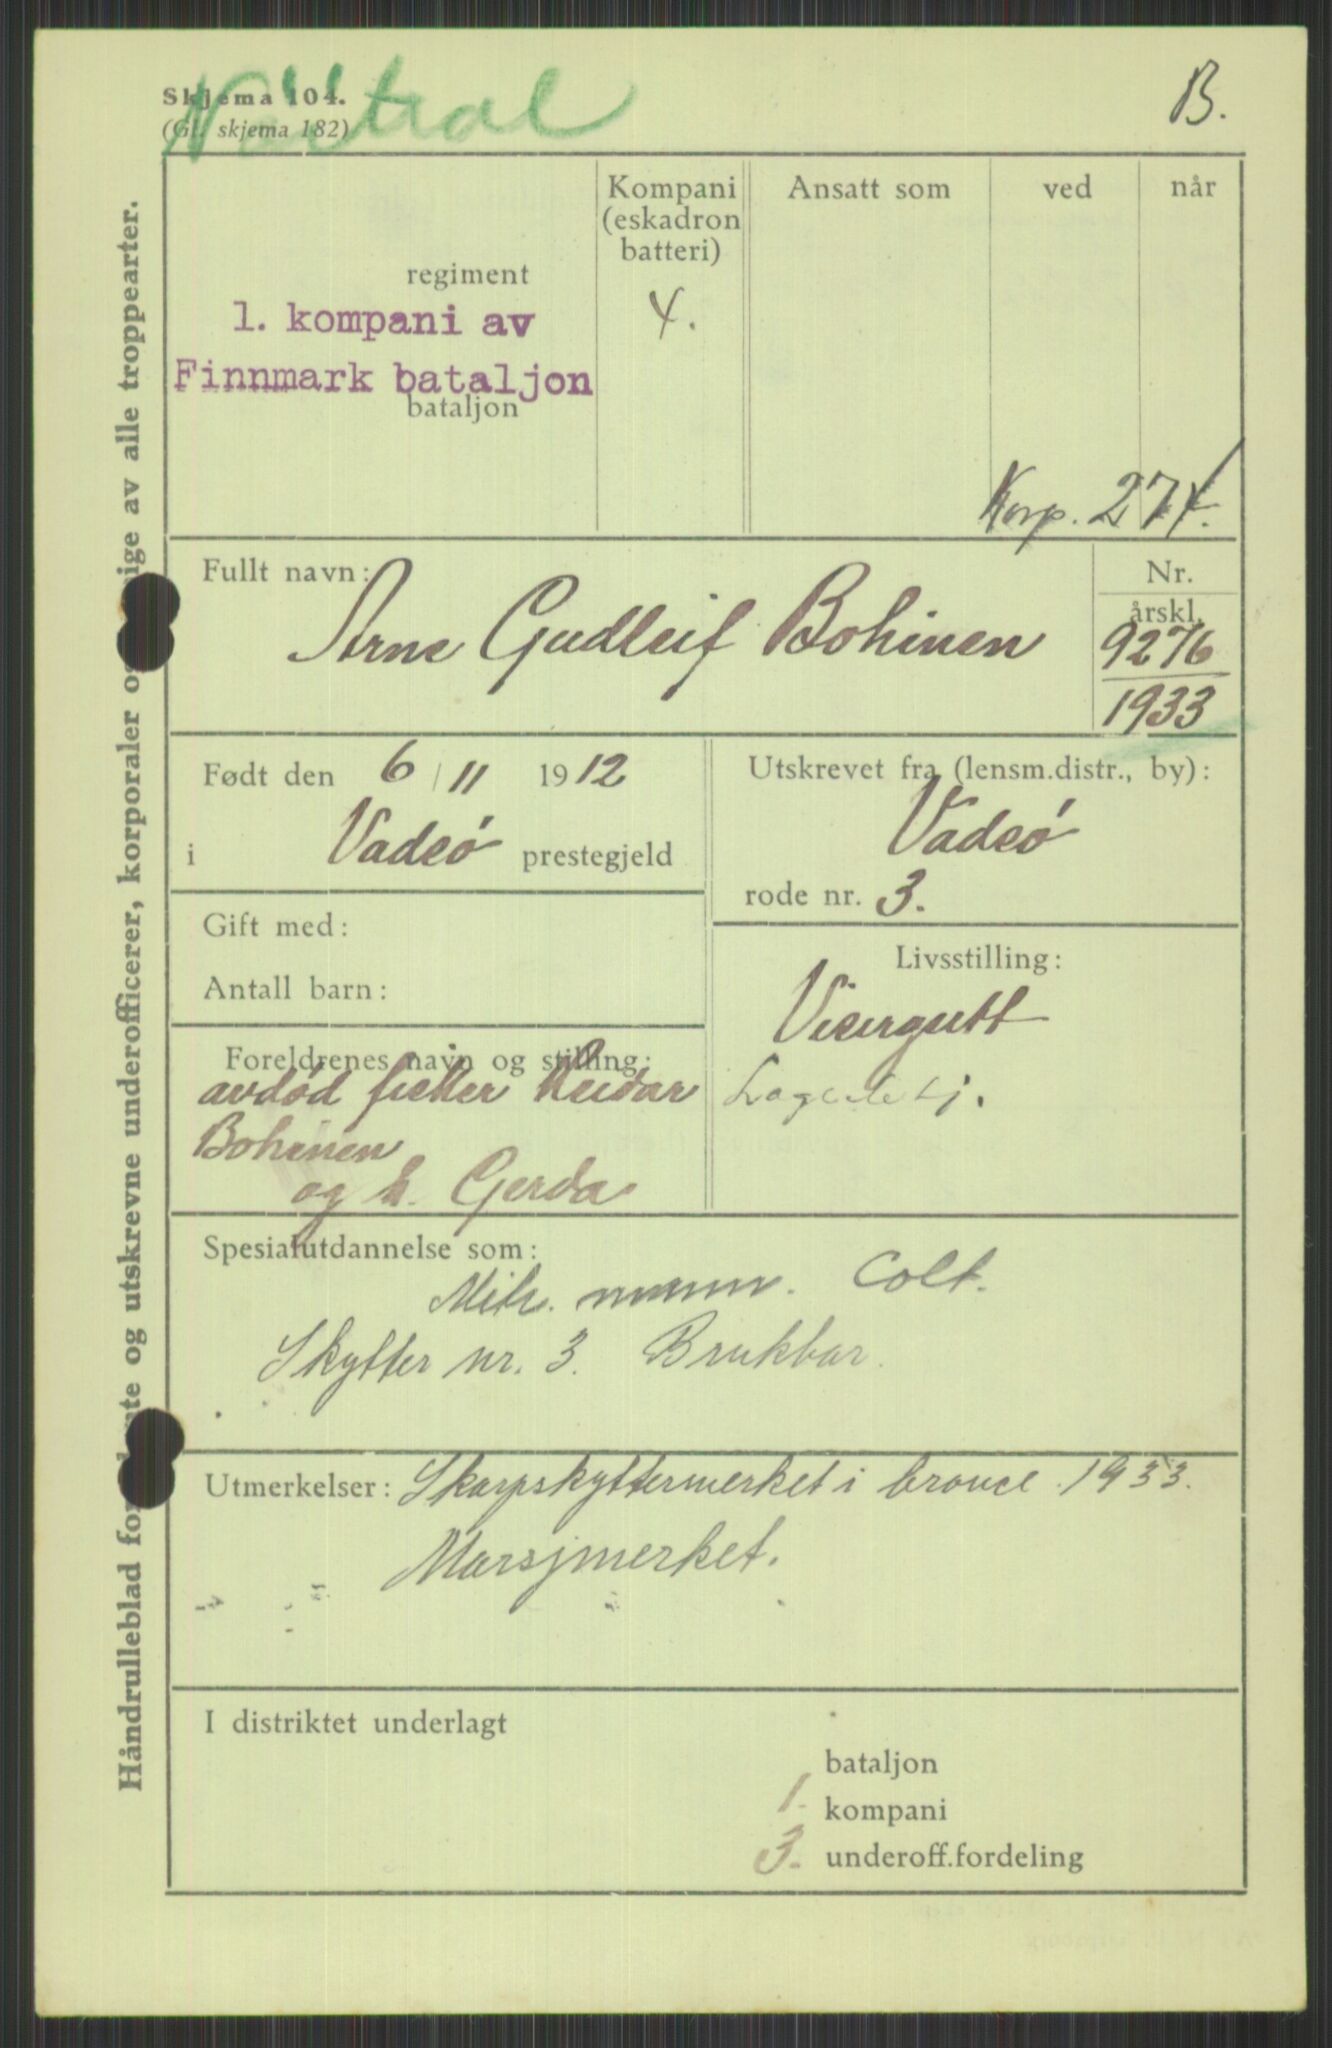 Skjema 104.
(Gl. skjema 182)
Nøitral
B.
Håndrulleblad for te og utskrevne underofficerer, korporaler o ige av alle troppearter.
Kompani
(eskadron
batteri)
Ansatt som
ved
når
regiment
4.
1. kompani av
Finnmark bataljon
bataljon
Korp. 27/4.
Fullt navn:
Arne Gudleif Bohinen
Nr.
årskl.
9276
1933
Født den 6/11 1912
i Vadsö prestegjeld
Utskrevet fra (lensm.distr., by):
Vadsö
rode nr. 3.
Gift med:
Antall barn:
Livsstilling:
Visergutt
Foreldrenes navn og stilling:
avdød fisker Reidar
Bohinen
og h. Gerda
Spesialutdannelse som:
Mitr. mann. Colt.
Skytter nr. 3. Brukbar.
Utmerkelser: Skarpskyttermerket i bronce 1933.
Marsjmerket.
I distriktet underlagt
bataljon
1. kompani
3. underoff.fordeling